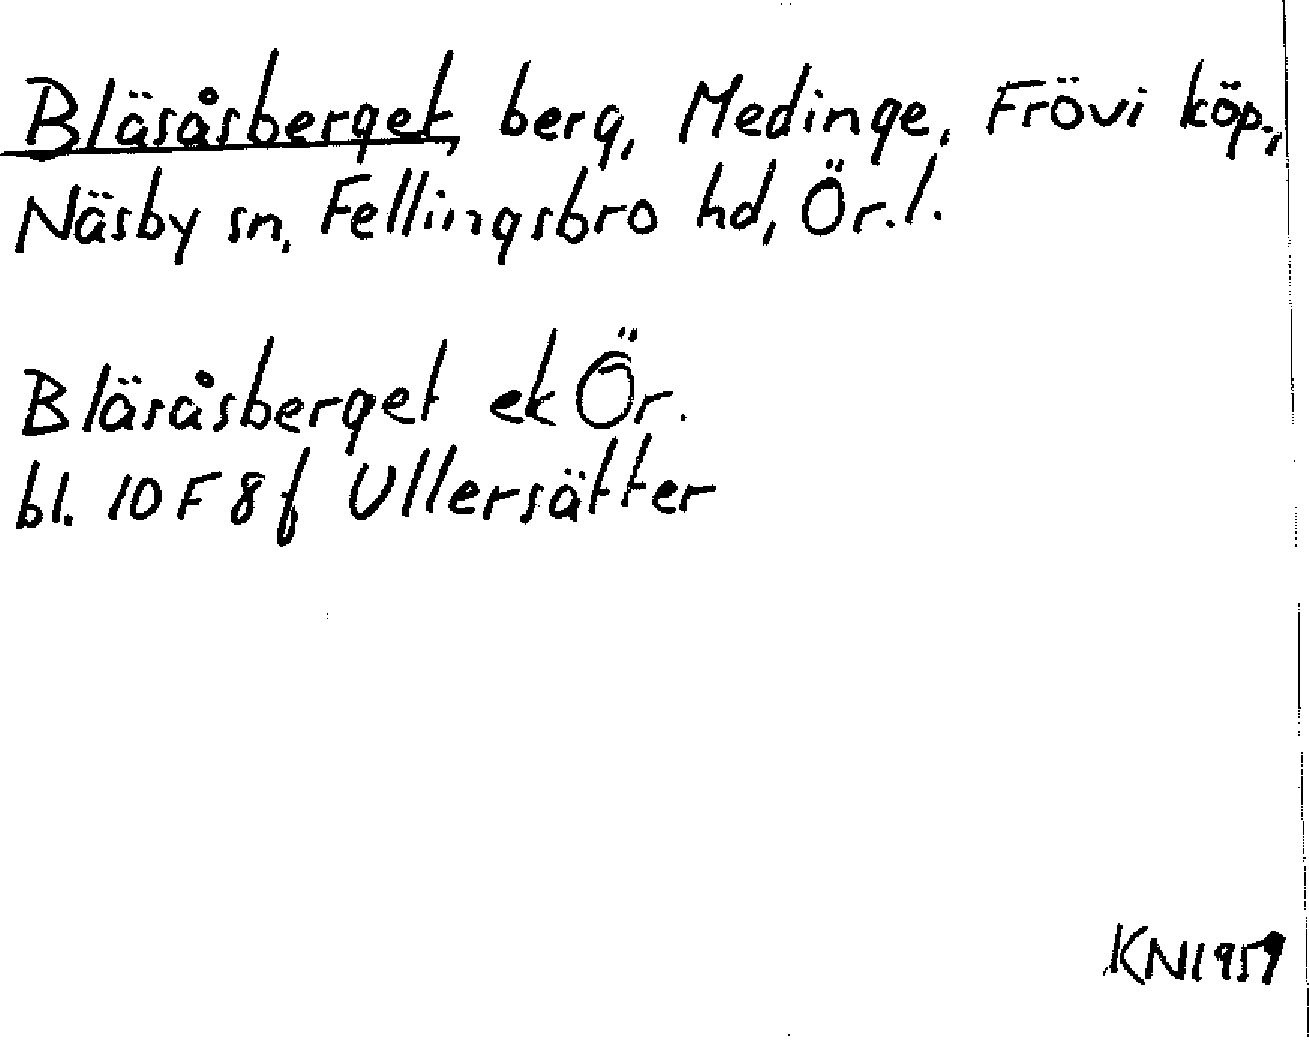 Bläsåsberget, berg, Medinge, Frövi köp.,
Näsby sn, Fellingsbro hd, Ör.l.
Bläsåsberget ek Ör.
bl. 10 F 8 f Ullersätter
KN 1959